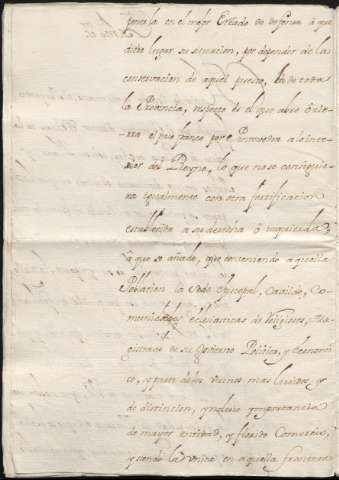 ponerla en el mejor Estado de defensa à que
dicho lugar su situacion, por depender de la
conservacion de aquel puesto, la de toda
la Provincia, respecto es el que abre ò cie-
rra el paso franco por Provincia a lo inte-
rior del Reyno, lo que no se conseguiria
igualmente con otra fortificacion
establecida a su derecha ò izquierda;
à que se añade, que conteniendo aquella
Poblacion la Sede Episcopal, Cavildo, Co-
munidades eclesiasticas de Religiosos, Ma-
gistrado de su Govierno Politico, y Economi-
co, y parte de los vecinos mas lucidos y
de distincion, yncluie ymportancia
de mayor entidad, y florido Comercio,
y siendo la unica en aquella frontera